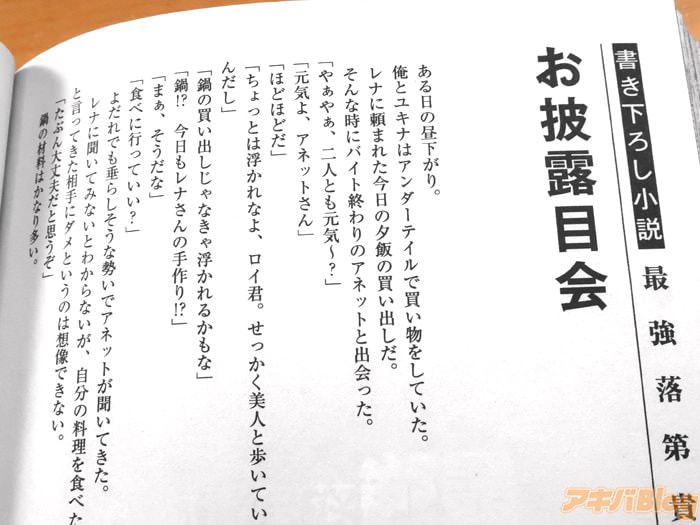 書き下ろし小説
最強落第貴
お披露目会
ある日の昼下がり。
俺とユキナはアンダーテイルで買い物をしていた。
レナに頼まれた今日の夕飯の買い出しだ。
そんな時にバイト終わりのアネットと出会った。
「やぁやぁ、二人とも元気～?」
「元気よ、アネットさん」
「ほどほどだ」
「ちょっとは浮かれなよ、ロイ君。せっかく美人と歩いてい
んだし」
「鍋の買い出しじゃなきゃ浮かれるかもな」
「鍋!? 今日もレナさんの手作り!?」
「まぁ、そうだな」
「食べに行っていい?」
よだれでも垂らしそうな勢いでアネットが聞いてきた。
レナに聞いてみないとわからないが、自分の料理を食べた
と言ってきた相手にダメというのは想像できない。
「たぶん大丈夫だと思うぞ」
鍋の材料はかなり多い。
アキバBlog